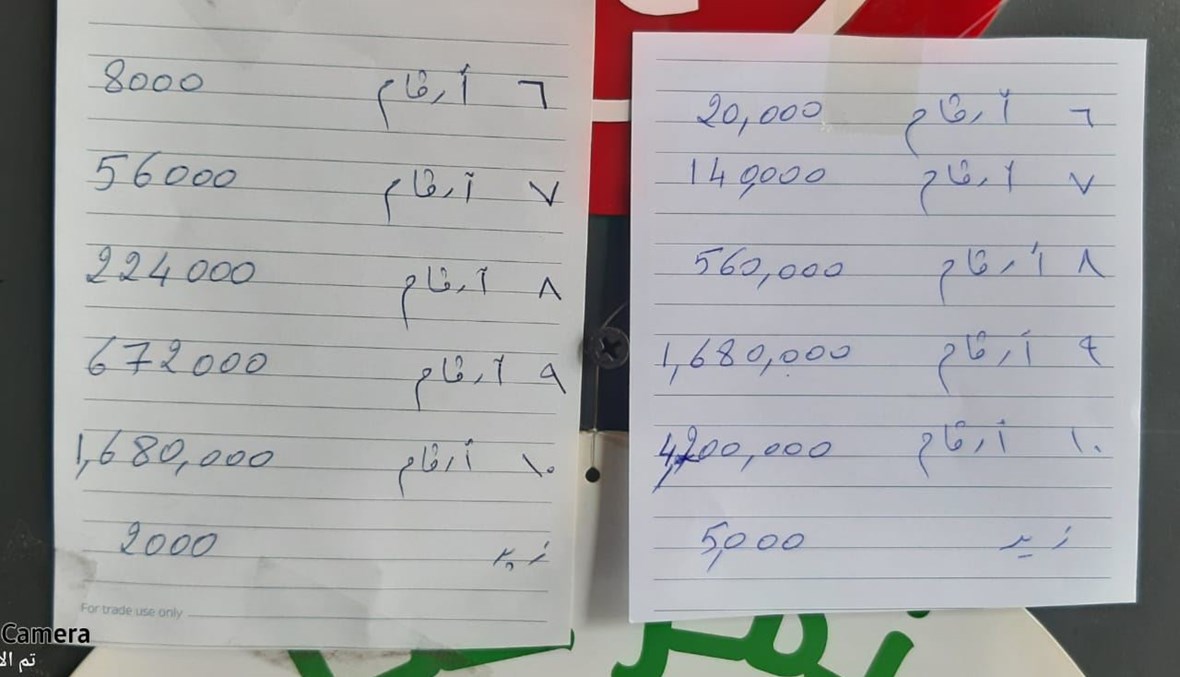 ٦ أرقام 8000
٧ أرقام 56000
٨ أرقام 224000
٩ أرقام 672000
١٠ أرقام 1,680,000
زيد 2000
For trade use only
٦ أرقام 20,000
٧ أرقام 140,000
٨ أرقام 560,000
٩ أرقام 1,680,000
١٠ أرقام 4,200,000
زيد 5,000
Camera